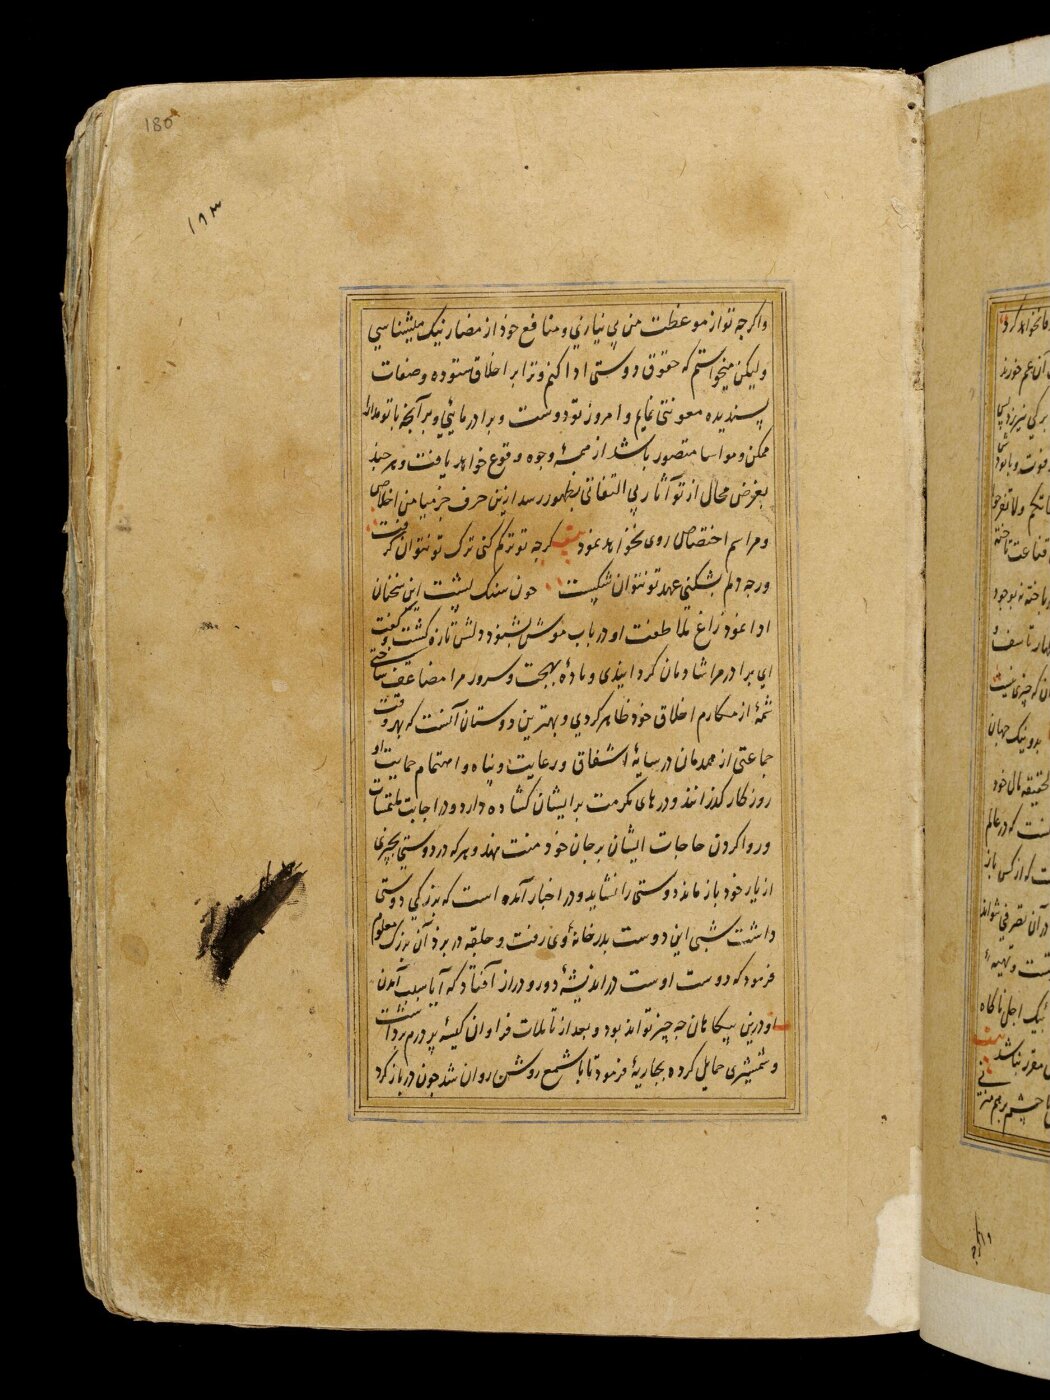 180
۱۸۳
واکرچه تو از موعظت من بی نیازی و منافع خود از مضار نیک میشناسی
ولیکن میخواستم که حقوق دوستی ادا کنم و ترا بر اخلاق ستوده و صفات
پسندیده معونتی نمایم و امروز تو دوست و برادر مائی و هر آنچه با تو مدارا
ممکن و مواسا متصور باشد از همه وجوه وقوع خواهد یافت و هر چند
بفرض محال از تو آثار بی التفاتی بظهور رسد ازین طرف جز میامن اخلاص
و مراسم اختصاص روی نخواهد نمود بیت کرچه تو ترکم کنی ترک تو نتوان کرفت
ورچه دلم بشکنی عهد تو نتوان شکست چون سنک پشت این سخنان
ادا نمود زاغ ملاطفت او در باب موش بشنود دلش تازه کشت و کفت
ای برادر مرا شادمان کردانیدی و مادهٔ بهجت و سرور مرا مضاعف ساختی
شمهٔ از مکارم اخلاق خود ظاهر کردی و بهترین دوستان آنست که بهر وقت
جماعتی از همدمان در سایهٔ اشفاق و رعایت و پناه و اهتمام حمایت او
روزکار کذرانند و درهای مکرمت بر ایشان کشاده دارد و در اجابت ملتمسات
و روا کردن حاجات ایشان بر جان خود منت نهد و هر که در دوستی بچیزی
از یار خود باز ماند دوستی را نشاید و در اخبار آمده است که بزرکی دوستی
داشت شبی این دوست بدر خانهٔ وی رفت و حلقه در بزد آن بزرک معلوم
فرمود که دوست اوست در اندیشهٔ دور و دراز افتاد که آیا سبب آمدن
او درین بیکاهان چه چیز تواند بود و بعد از تاملات فراوان کیسهٔ پر درم برداشت
و شمشیری حمایل کرده بجاریهٔ فرمود تا با شمع روشن روان شد چون در باز کرد